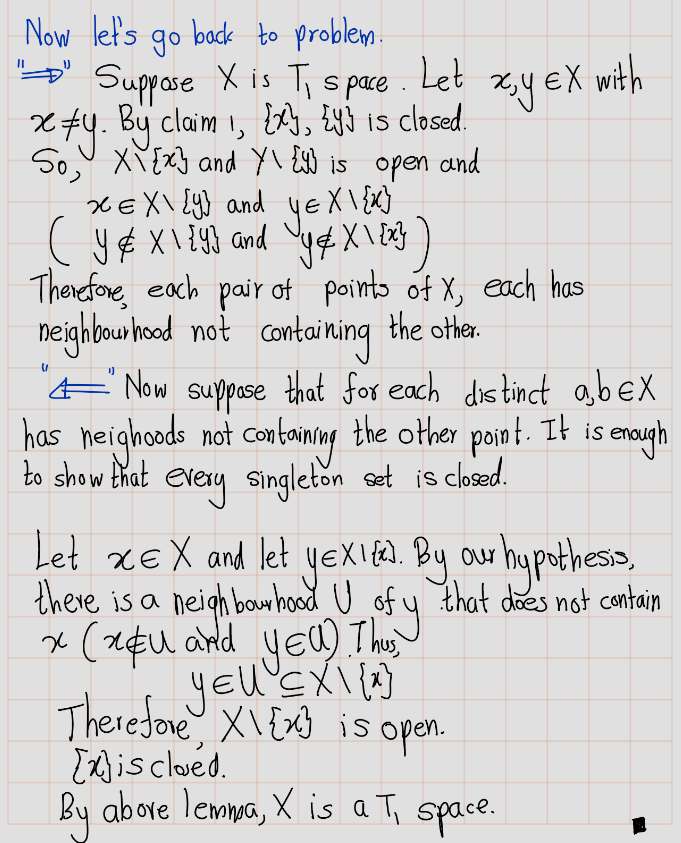 Now let's go back to problem.
"⇒" Suppose X is T₁ space. Let x,y ∈ X with
x ≠ y. By claim 1, {x}, {y} is closed.
So, X\{x} and Y\{y} is open and
x ∈ X\{y} and y ∈ X\{x}
( y ∉ X\{y} and y ∉ X\{x} )
Therefore, each pair of points of X, each has
neighbourhood not containing the other.
"⇐" Now suppose that for each distinct a,b ∈ X
has neighoods not containing the other point. It is enough
to show that every singleton set is closed.
Let x ∈ X and let y ∈ X\{x}. By our hypothesis,
there is a neighbourhood U of y that does not contain
x (x ∉ U and y ∈ U). Thus,
y ∈ U ⊆ X\{x}
Therefore, X\{x} is open.
{x} is closed.
By above lemma, X is a T₁ space.